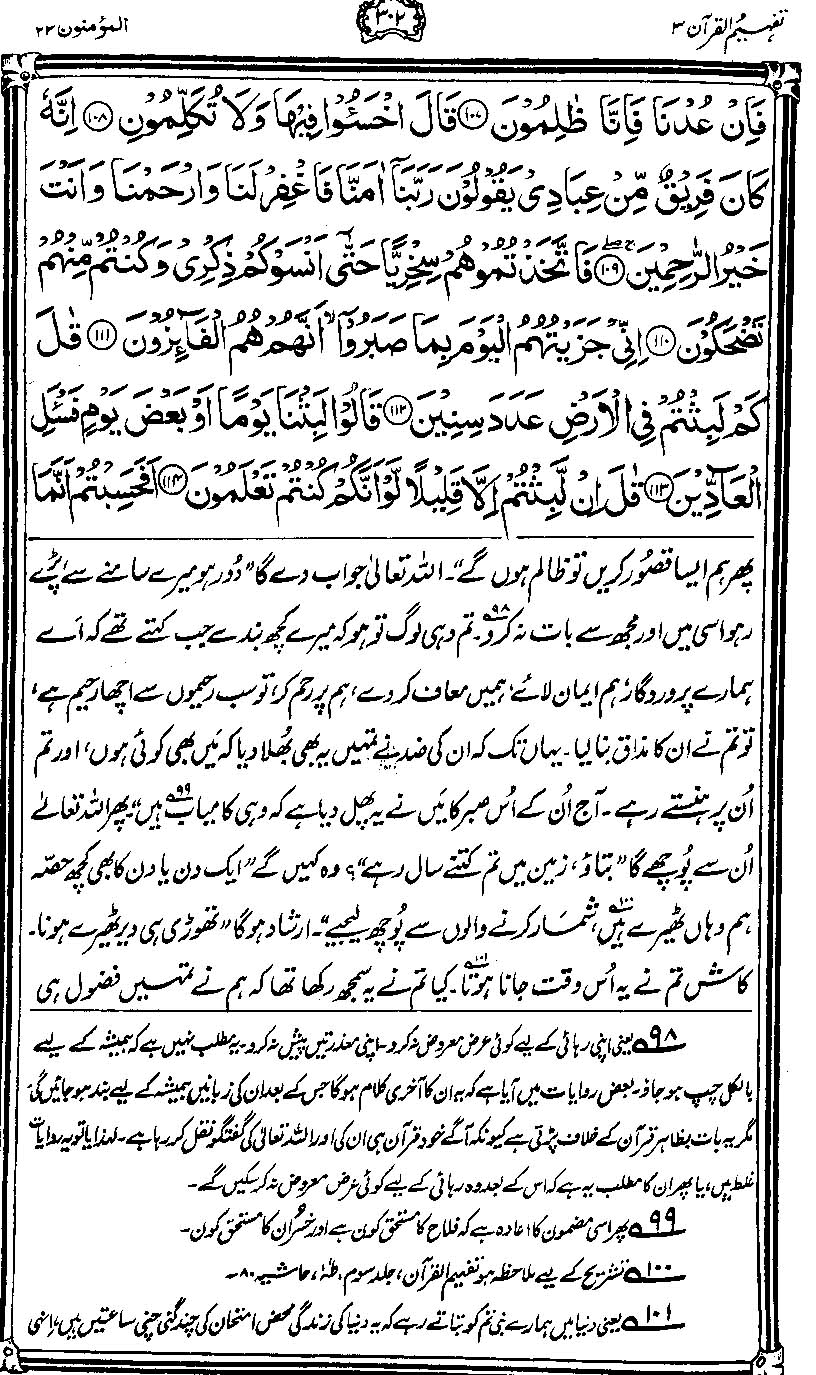 تفہیم القرآن ۳
۳۰۲
المؤمنون ۲۳
فَاِنْ عُدْنَا فَاِنَّا ظٰلِمُوْنَ ۝۱۰۷ قَالَ اخْسَـُٔوْا فِيْهَا وَلَا تُكَلِّمُوْنِ ۝۱۰۸ اِنَّهٗ
كَانَ فَرِيْقٌ مِّنْ عِبَادِيْ يَقُوْلُوْنَ رَبَّنَآ اٰمَنَّا فَاغْفِرْ لَنَا وَارْحَمْنَا وَاَنْتَ
خَيْرُ الرّٰحِمِيْنَ ۝۱۰۹ فَاتَّخَذْتُمُوْهُمْ سِخْرِيًّا حَتّٰٓى اَنْسَوْكُمْ ذِكْرِيْ وَكُنْتُمْ مِّنْهُمْ
تَضْحَكُوْنَ ۝۱۱۰ اِنِّيْ جَزَيْتُهُمُ الْيَوْمَ بِمَا صَبَرُوْٓا اَنَّهُمْ هُمُ الْفَآئِزُوْنَ ۝۱۱۱ قٰلَ
كَمْ لَبِثْتُمْ فِي الْاَرْضِ عَدَدَ سِنِيْنَ ۝۱۱۲ قَالُوْا لَبِثْنَا يَوْمًا اَوْ بَعْضَ يَوْمٍ فَسْـَٔلِ
الْعَآدِّيْنَ ۝۱۱۳ قٰلَ اِنْ لَّبِثْتُمْ اِلَّا قَلِيْلًا لَّوْ اَنَّكُمْ كُنْتُمْ تَعْلَمُوْنَ ۝۱۱۴ اَفَحَسِبْتُمْ اَنَّمَا
پھر ہم ایسا قصُور کریں تو ظالم ہوں گے“۔ اللہ تعالیٰ جواب دے گا ”دُور ہو میرے سامنے سے، پڑے
رہو اسی میں اور مجھ سے بات نہ کرو۔۹۸ تم وہی لوگ تو ہو کہ میرے کچھ بندے جب کہتے تھے کہ اَے
ہمارے پروردگار، ہم ایمان لائے، ہمیں معاف کردے، ہم پر رحم کر، تو سب رحیموں سے اچھا رحیم ہے،
تو تم نے ان کا مذاق بنالیا۔ یہاں تک کہ ان کی ضد نے تمہیں یہ بھی بُھلا دیا کہ مَیں بھی کوئی ہوں، اور تم
اُن پر ہنستے رہے۔ آج اُن کے اُس صبر کا مَیں نے یہ پھل دیا ہے کہ وہی کامیاب۹۹ ہیں“۔ پھر اللہ تعالےٰ
اُن سے پُوچھے گا ”بتاؤ، زمین میں تم کتنے سال رہے“؟ وہ کہیں گے ”ایک دن یا دن کا بھی کچھ حصّہ
ہم وہاں ٹھیرے ہیں،۱۰۰ شمار کرنے والوں سے پُوچھ لیجیے“۔ ارشاد ہوگا ”تھوڑی ہی دیر ٹھیرے ہونا۔
کاش تم نے یہ اُس وقت جانا ہوتا۔۱۰۱ کیا تم نے یہ سمجھ رکھا تھا کہ ہم نے تمہیں فضول ہی
۹۸ یعنی اپنی رہائی کے لیے کوئی عرض معروض نہ کرو۔ اپنی معذرتیں پیش نہ کرو۔ یہ مطلب نہیں ہے کہ ہمیشہ کے لیے
بالکل چپ ہو جاؤ۔ بعض روایات میں آیا ہے کہ یہ ان کا آخری کلام ہوگا جس کے بعد ان کی زبانیں ہمیشہ کے لیے بند ہو جائیں گی،
مگر یہ بات بظاہر قرآن کے خلاف پڑتی ہے کیونکہ آگے خود قرآن ہی ان کی اور اللہ تعالیٰ کی گفتگو نقل کر رہا ہے۔ لہٰذا یا تو یہ روایات
غلط ہیں، یا پھر ان کا مطلب یہ ہے کہ اس کے بعد وہ رہائی کے لیے کوئی عرض معروض نہ کر سکیں گے۔
۹۹ پھر اسی مضمون کا اعادہ ہے کہ فلاح کا مستحق کون ہے اور خسُران کا مستحق کون۔
۱۰۰ تشریح کے لیے ملاحظہ ہو تفہیم القرآن، جلد سوم، طٰہٰ، حاشیہ ۸۰۔
۱۰۱ یعنی دنیا میں ہمارے نبی تم کو بتاتے رہے کہ یہ دنیا کی زندگی محض امتحان کی چند گنی چنی ساعتیں ہیں، اِنہی